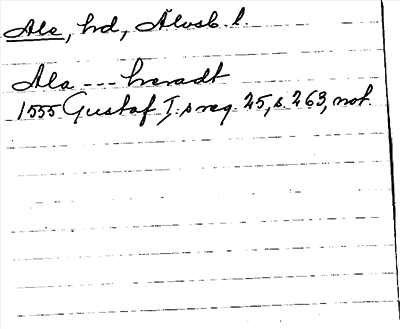 Ale, hd, Älvsb. l.
Ala --- heradt
1555 Gustaf I:s reg. 25, s. 263, not.